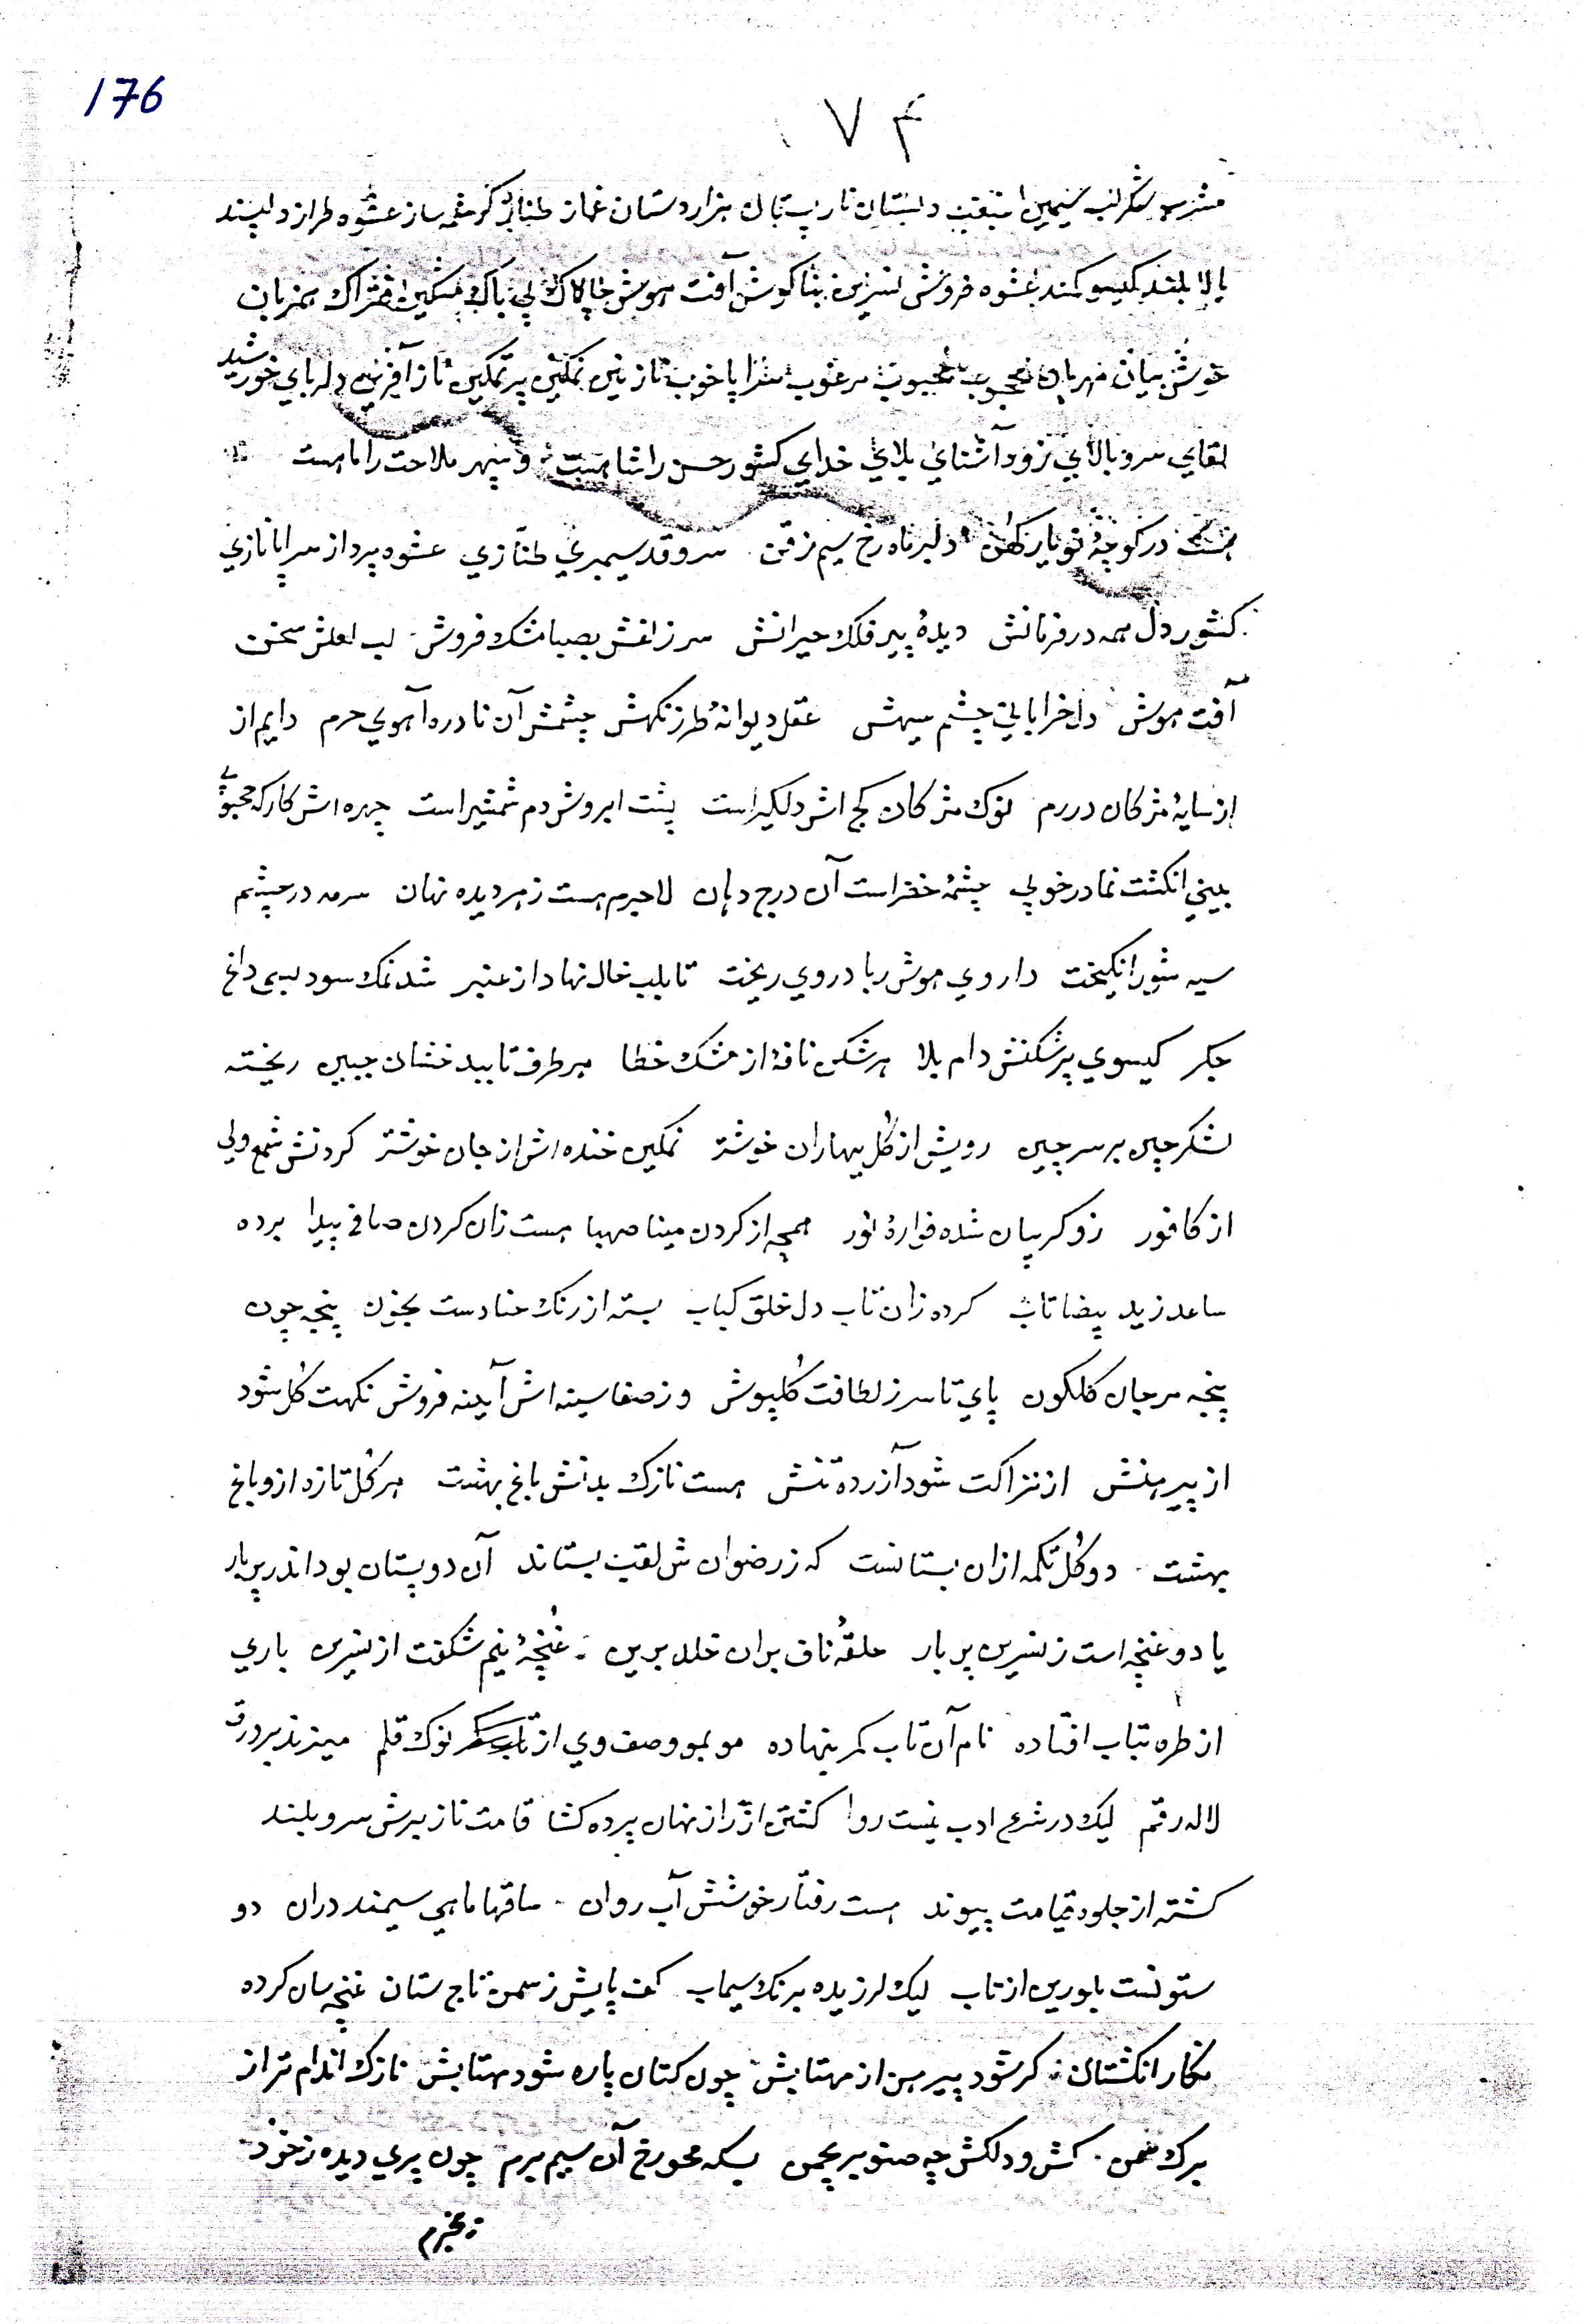 176
۱۷۴
شکر لب سیمین دلستان نار پستان هزار دستان غماز طناز کرشمه ساز عشوه طراز دلپسند
بالا بلند گیسو کمند عشوه فروش نسرین بناگوش آفت هوش چالاک بی باک مشکین فتراک
خوش بیان مهربان محجوب محبوب مرغوب سراپا خوب نازنین نمکین پر تمکین ناز آفرینی دلربای خورشید
لقای سرو بالای زود آشنای بلای خدای کشور حسن را شاهست و سپهر ملاحت را ماهست
هست در کوچهٔ تو یار کهن دلبر ماه رخ سیم ذقن سرو قد سیمبری طنازی عشوه پرداز سراپا نازی
کشور دل همه در فرمانش دیدهٔ پیر فلک حیرانش سر زلفش بصبا مشک فروش لب لعلش سخن
آفت هوش دل خراباتی چشم سیهش عقل دیوانهٔ طرز نکهش چشمش آن نادره آهوی حرم دایم از
از سایهٔ مژکان در رم نوک مژکان کج اش دلکیر است پشت ابروش دم شمشیر است چهره اش کارکه محبوبی
بینی انکشت نما در خوبی چشمهٔ خضر است آن درج دهان لاجرم هست ز هر دیده نهان سرمه در چشم
سیه شور انکیخت داروی هوش ربا در وی ریخت تا بلب خال نهاد از عنبر شد نمک سود بسی داغ
جکر کیسوی پر شکنش دام بلا هر شکن نافهٔ از مشک خطا هر طرف تا بید خشان جبین ریخته
لشکر چین بر سر چین رویش از کل بهاران خوشتر نمکین خنده اش از جان خوشتر کردنش شمع ولی
از کافور زو کریبان شده فوارهٔ نور همچه از کردن مینا صهبا هست زان کردن صافی پیدا برده
ساعد ز ید بیضا تاب کرده زان تاب دل خلق کباب بسته از رنک حنا دست بخون پنجه چون
پنجه مرجان کلکون پای تا سر ز لطافت کلپوش وز صفا سینه اش آینه فروش نکهت کل شود
از پیرهنش از نزاکت شود آزرده تنش هست نازک بدنش باغ بهشت هر کل تازه ازو باغ
بهشت دو کل تکمه ازان بستانست که ز رضوان ش لقب بستاند آن دو پستان بود اندر بر یار
یا دو غنچه است ز نسرین بر بار حلقهٔ ناف بران خلد برین غنچهٔ نیم شکفت از نسرین باری
از طره بتاب افتاده نام آن تاب کمر بنهاده مو بمو وصف وی از نوک قلم میزند بر ورق
لاله رقم لیک در شرع ادب نیست روا کشتن از راز نهان پرده کشا قامت ناز برش سرو بلند
کشته از جلوه قیامت پیوند هست رفتار خوشش آب روان ساقها ماهی سیمند دران دو
ستونست بلورین از تاب لیک لرزیده برنک سیماب کف پایش ز سمن تاج ستان غنچه سان کرده
نکار انکشتان کر شود پیرهن از مهتابش چون کتان پاره شود مهتابش نازک اندام تر از
برک سمن کش و دلکش چه صنوبر بچمن بسکه محو رخ آن سیم برم چون پری دیده ز خود
بیخبرم